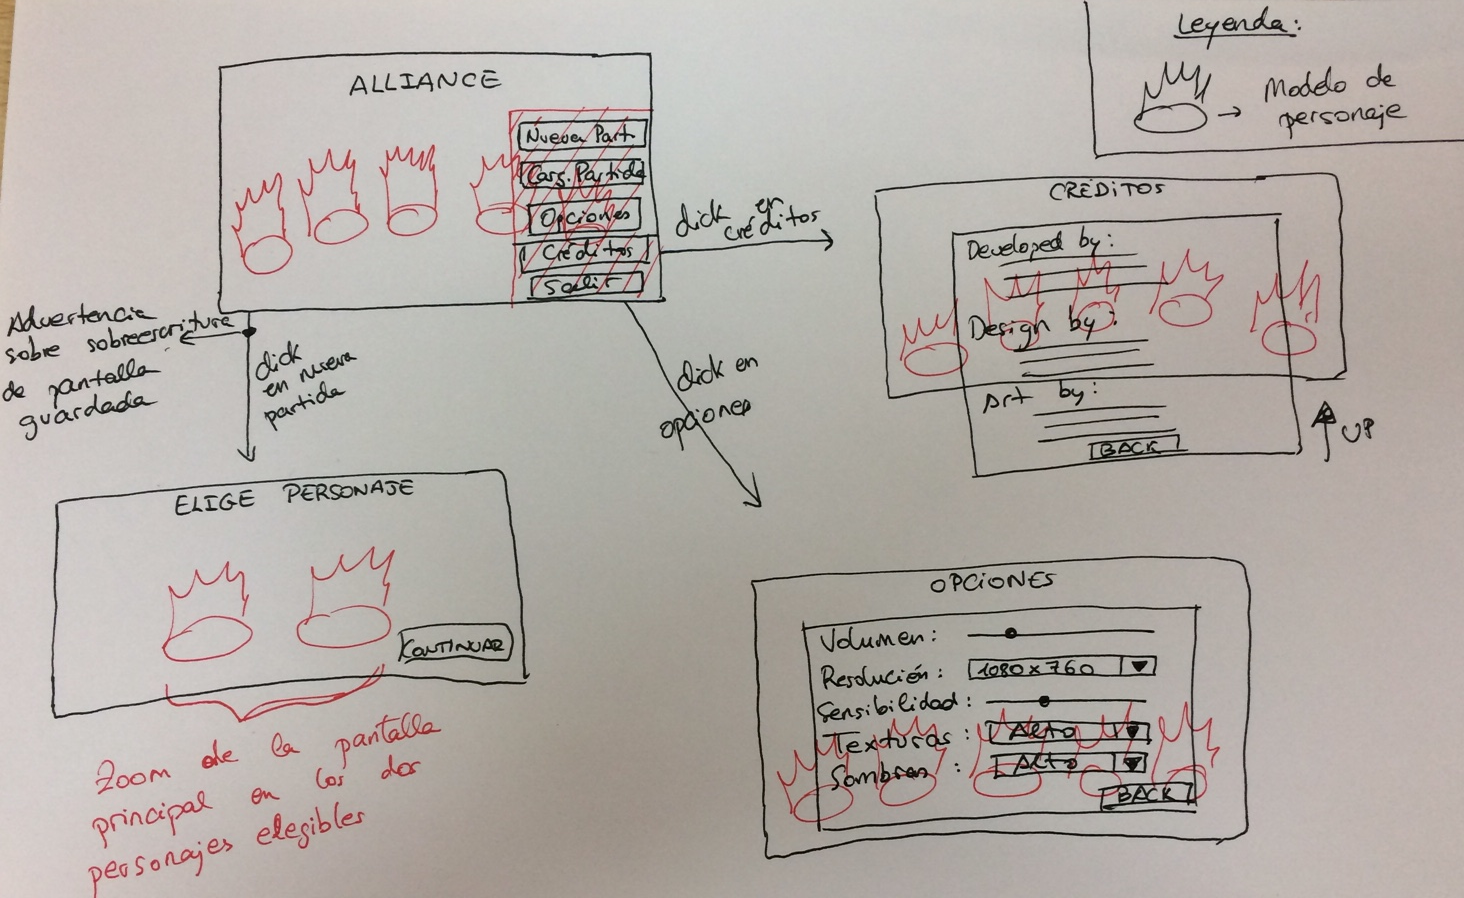 Leyenda:
Modelo de
personaje
ALLIANCE
Nueva Part
Carg. Partida
Opciones
Créditos
Salir
click en
créditos
CRÉDITOS
Developed by:
Design by:
Art by:
BACK
UP
Advertencia
sobre sobreescritura
de pantalla
guardada
click
en nueva
partida
click en
opciones
ELIGE PERSONAJE
CONTINUAR
Zoom de la pantalla
principal en los dos
personajes elegibles
OPCIONES
Volumen:
Resolución: 1080x760
Sensibilidad:
Texturas: Alto
Sombras: Alto
BACK